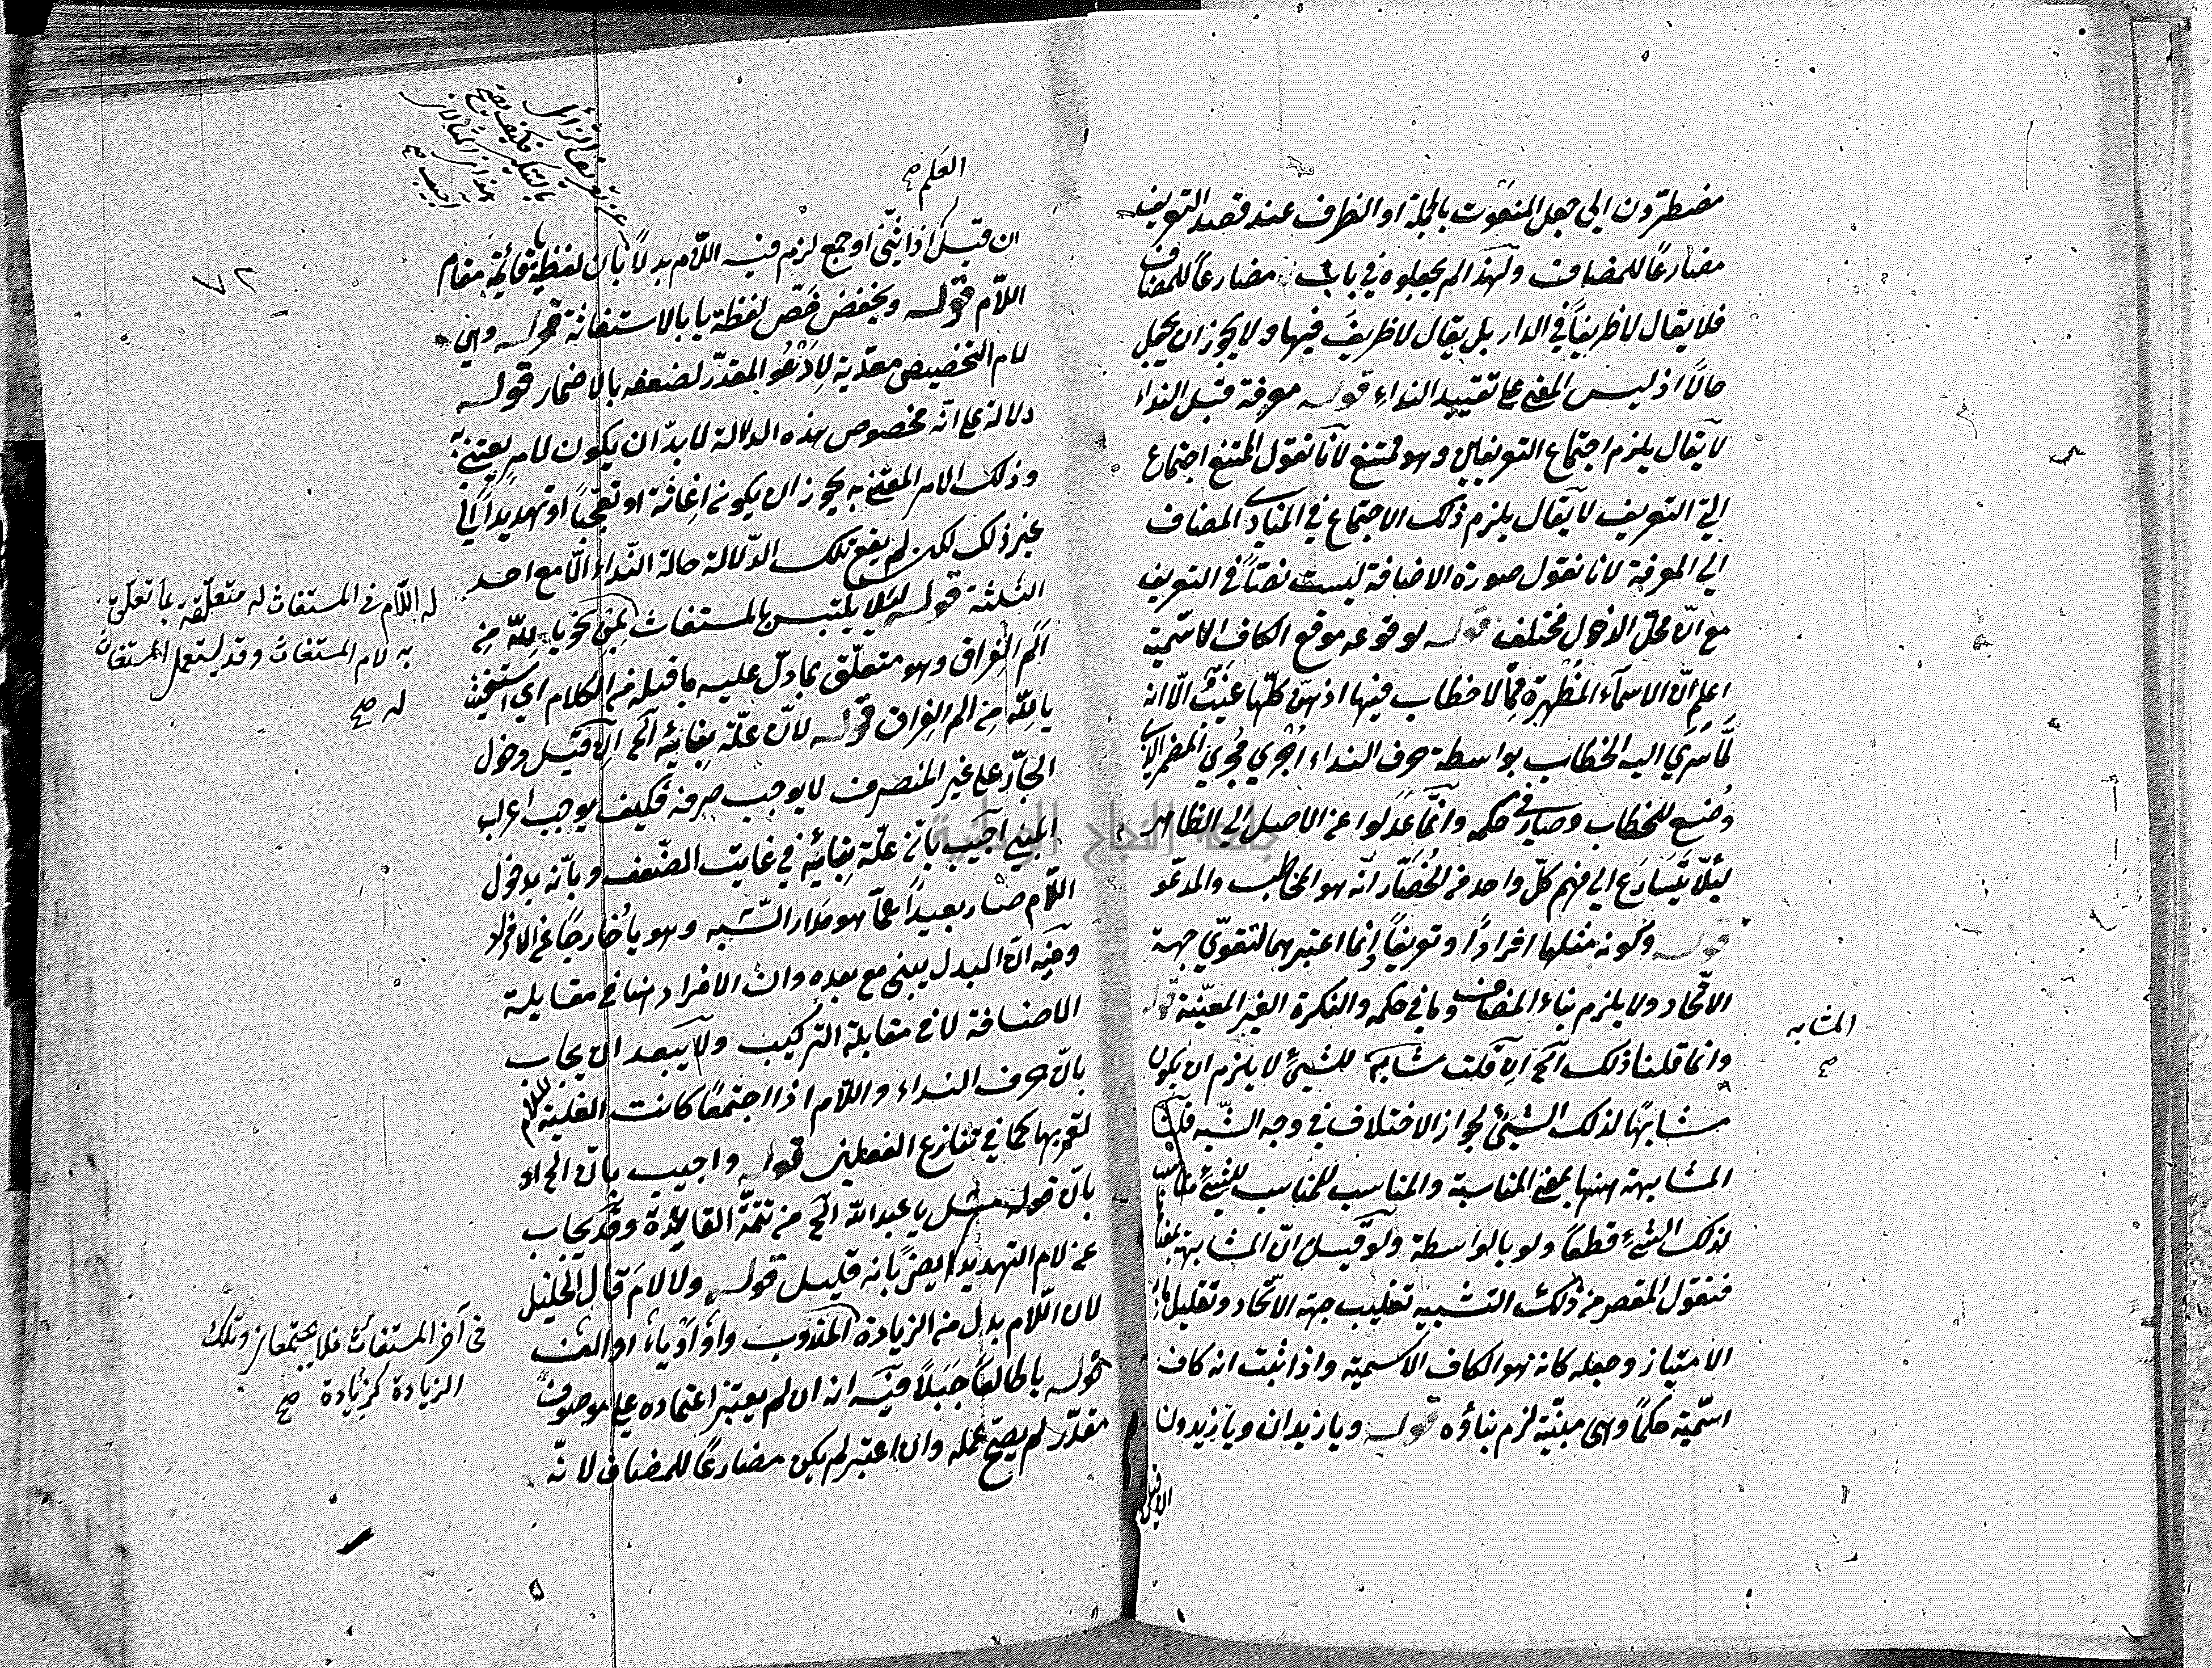 مضطرّون الى جعل المنعوت بالجملة او الظرف عند قصد التعريف
مضارعًا للمضاف ولهذا لم يجعلوه في باب لا مضارعًا للمضاف
فلا يقال لا ظريفًا في الدار بل يقال لا ظريفَ فيها ولا يجوز ان يجعل
حالًا اذ ليس المعنى على تقييد النداء قوله معرفة قبل النداء
لا يقال يلزم اجتماع التعريفين وهو ممتنع لانّا نقول الممتنع اجتماع
التي التعريف لا يقال يلزم ذلك الاجتماع في المنادى المضاف
الى المعرفة لانا نقول صورة الاضافة ليست نصّا في التعريف
مع انّ محلّ الدخول مختلف قوله لوقوعه موقع الكاف الاسميّة
اعلم انّ الاسمآء المُظهرة ممّا لا خطاب فيها اذ هنّ كلّها غيَبٌ الّا انه
لمّا سَرَي اليه الخطاب بواسطة حرف النداء اُجري مُجري المضمر الذي
وُضع للخطاب وصار في حكمه وانّما عَدَلوا عن الاصل الى الظاهر
لئلّا يَتَسارَع الى فهم كلّ واحد من الحُضّار انّه هو المخاطب والمدعوّ
قوله وكونه مثلها افرادًا وتعريفًا انما اعتبرهما لتقوّي جهة
الاتّحاد ولا يلزم بناء المضاف وما في حكمه والنكرة الغير المعيّنة قوله
وانما قلنا ذلك الخ ان قلت مشابه للشئ لا يلزم ان يكون
المشابه صح
مشابهًا لذلك الشئ لجواز الاختلاف في وجه الشّبه قلنا
المشابهة ههنا بمعنى المناسبة والمناسب للمناسب للشئ مناسب
لذلك الشئ قطعًا ولو بالواسطة ولو قيل انّ المشابهة بمعناها
فنقول المقصد من ذلك التشبيه تغليب جهة الاتّحاد وتقليل
الامتياز وجعله كانه هو الكاف الاسميّة واذا ثبت انه كاف
اسميّة حكمًا وهي مبنيّة لزم بناؤه قوله ويا زيدان ويا زيدون
ان قيل
العَلَم صح
٧٢
ان قيل اذا ثنّي او جمع لزم فيه اللّام بدلًا بان لفظة يا قائمة مقام
اللّام قوله ويخفض خصّ لفظة يا بالاستغاثة قوله وهي
لام التخصيص معدّية لِاَدْعُو المقدّر لضعفه بالاضمار قوله
دلالة على انّه مخصوص بهذه الدلالة لا بدّ ان يكون لامرٍ يعتنى به
وذلك الامر المعتنى به يجوز ان يكون اغاثة او تعجّبًا او تهديدًا الى
غير ذلك لكن لم يقع تلك الدّلالة حالة النّداء الّا مع احد
الثلثة قوله لئلا يلتبس بالمستغاث لِمَن نحو يا للّه مِن
اَلَم الفراق وهو متعلّق بما دلّ عليه ما قبله من الكلام اي استغيث
يا لِلّه مِن الم الفراق قوله لانّ علّة بنائه الخ ان قيل دخول
الجارّ على غير المنصرف لا يوجب صرفه فكيف يوجب اعراب
المبني اجيب بانّ علّة بنائه في غايت الضّعف وبانّه بدخول
اللّام صار بعيدًا عمّا هو مدار الشّبه وهو يا خارجًا عن الافراد
وفيه انّ المبدل يبنى مع بعده وان الافراد هنا في مقابلة
الاضافة لا في مقابلة التركيب ولا يبعد ان يجاب
بانّ حرف النداء واللّام اذا اجتمعا كانت الغلبة للّام
لقربها كما في تنازع الفعلين قوله واجيب بانّ الخ او
بانّ قوله مثل يا عبد اللّه الخ من تتمّة القاعدة وقد يجاب
عن لام التهديد ايضًا بانه قليل قوله ولا لامَ قال الخليل
لان اللّام بدل من الزيادة المندوب واوٌ او ياءٌ او الف
قوله يا طالعًا جَبَلًا فيه انه ان لم يعتبر اعتماده على موصوف
مقدّر لم يصحّ عمله وان اعتبر لم يكن مضارعًا للمضاف لانّه
له اللّام في المستغاث له متعلّقة بما تعلّق
به لام المستغاث وقد يستعمل المستغاث
له صح
في آخر المستغاث فلا يجتمعان وتلك
الزيادة كزيادة صح